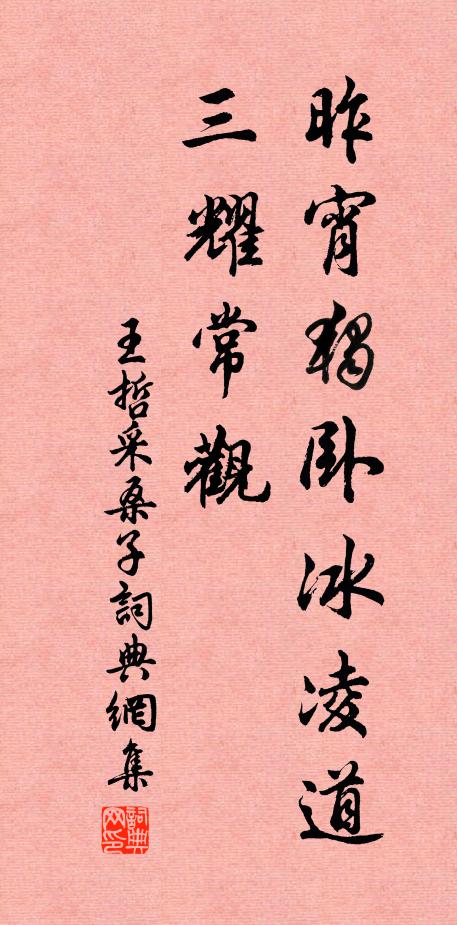 昨宵獨卧冰凌道
三耀常觀
王哲采桑子詞典網集
詞典
网印